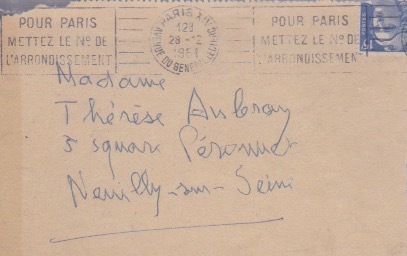 POUR PARIS
METTEZ LE Nº DE
L'ARRONDISSEMENT
PARIS
12H
28 - 2
1951
AVENUE DU GENERAL LECLERC
POUR PARIS
METTEZ LE Nº DE
L'ARRONDISSEMENT
Madame
Thérèse Aubray
5 square Péronnet
Neuilly-sur-Seine